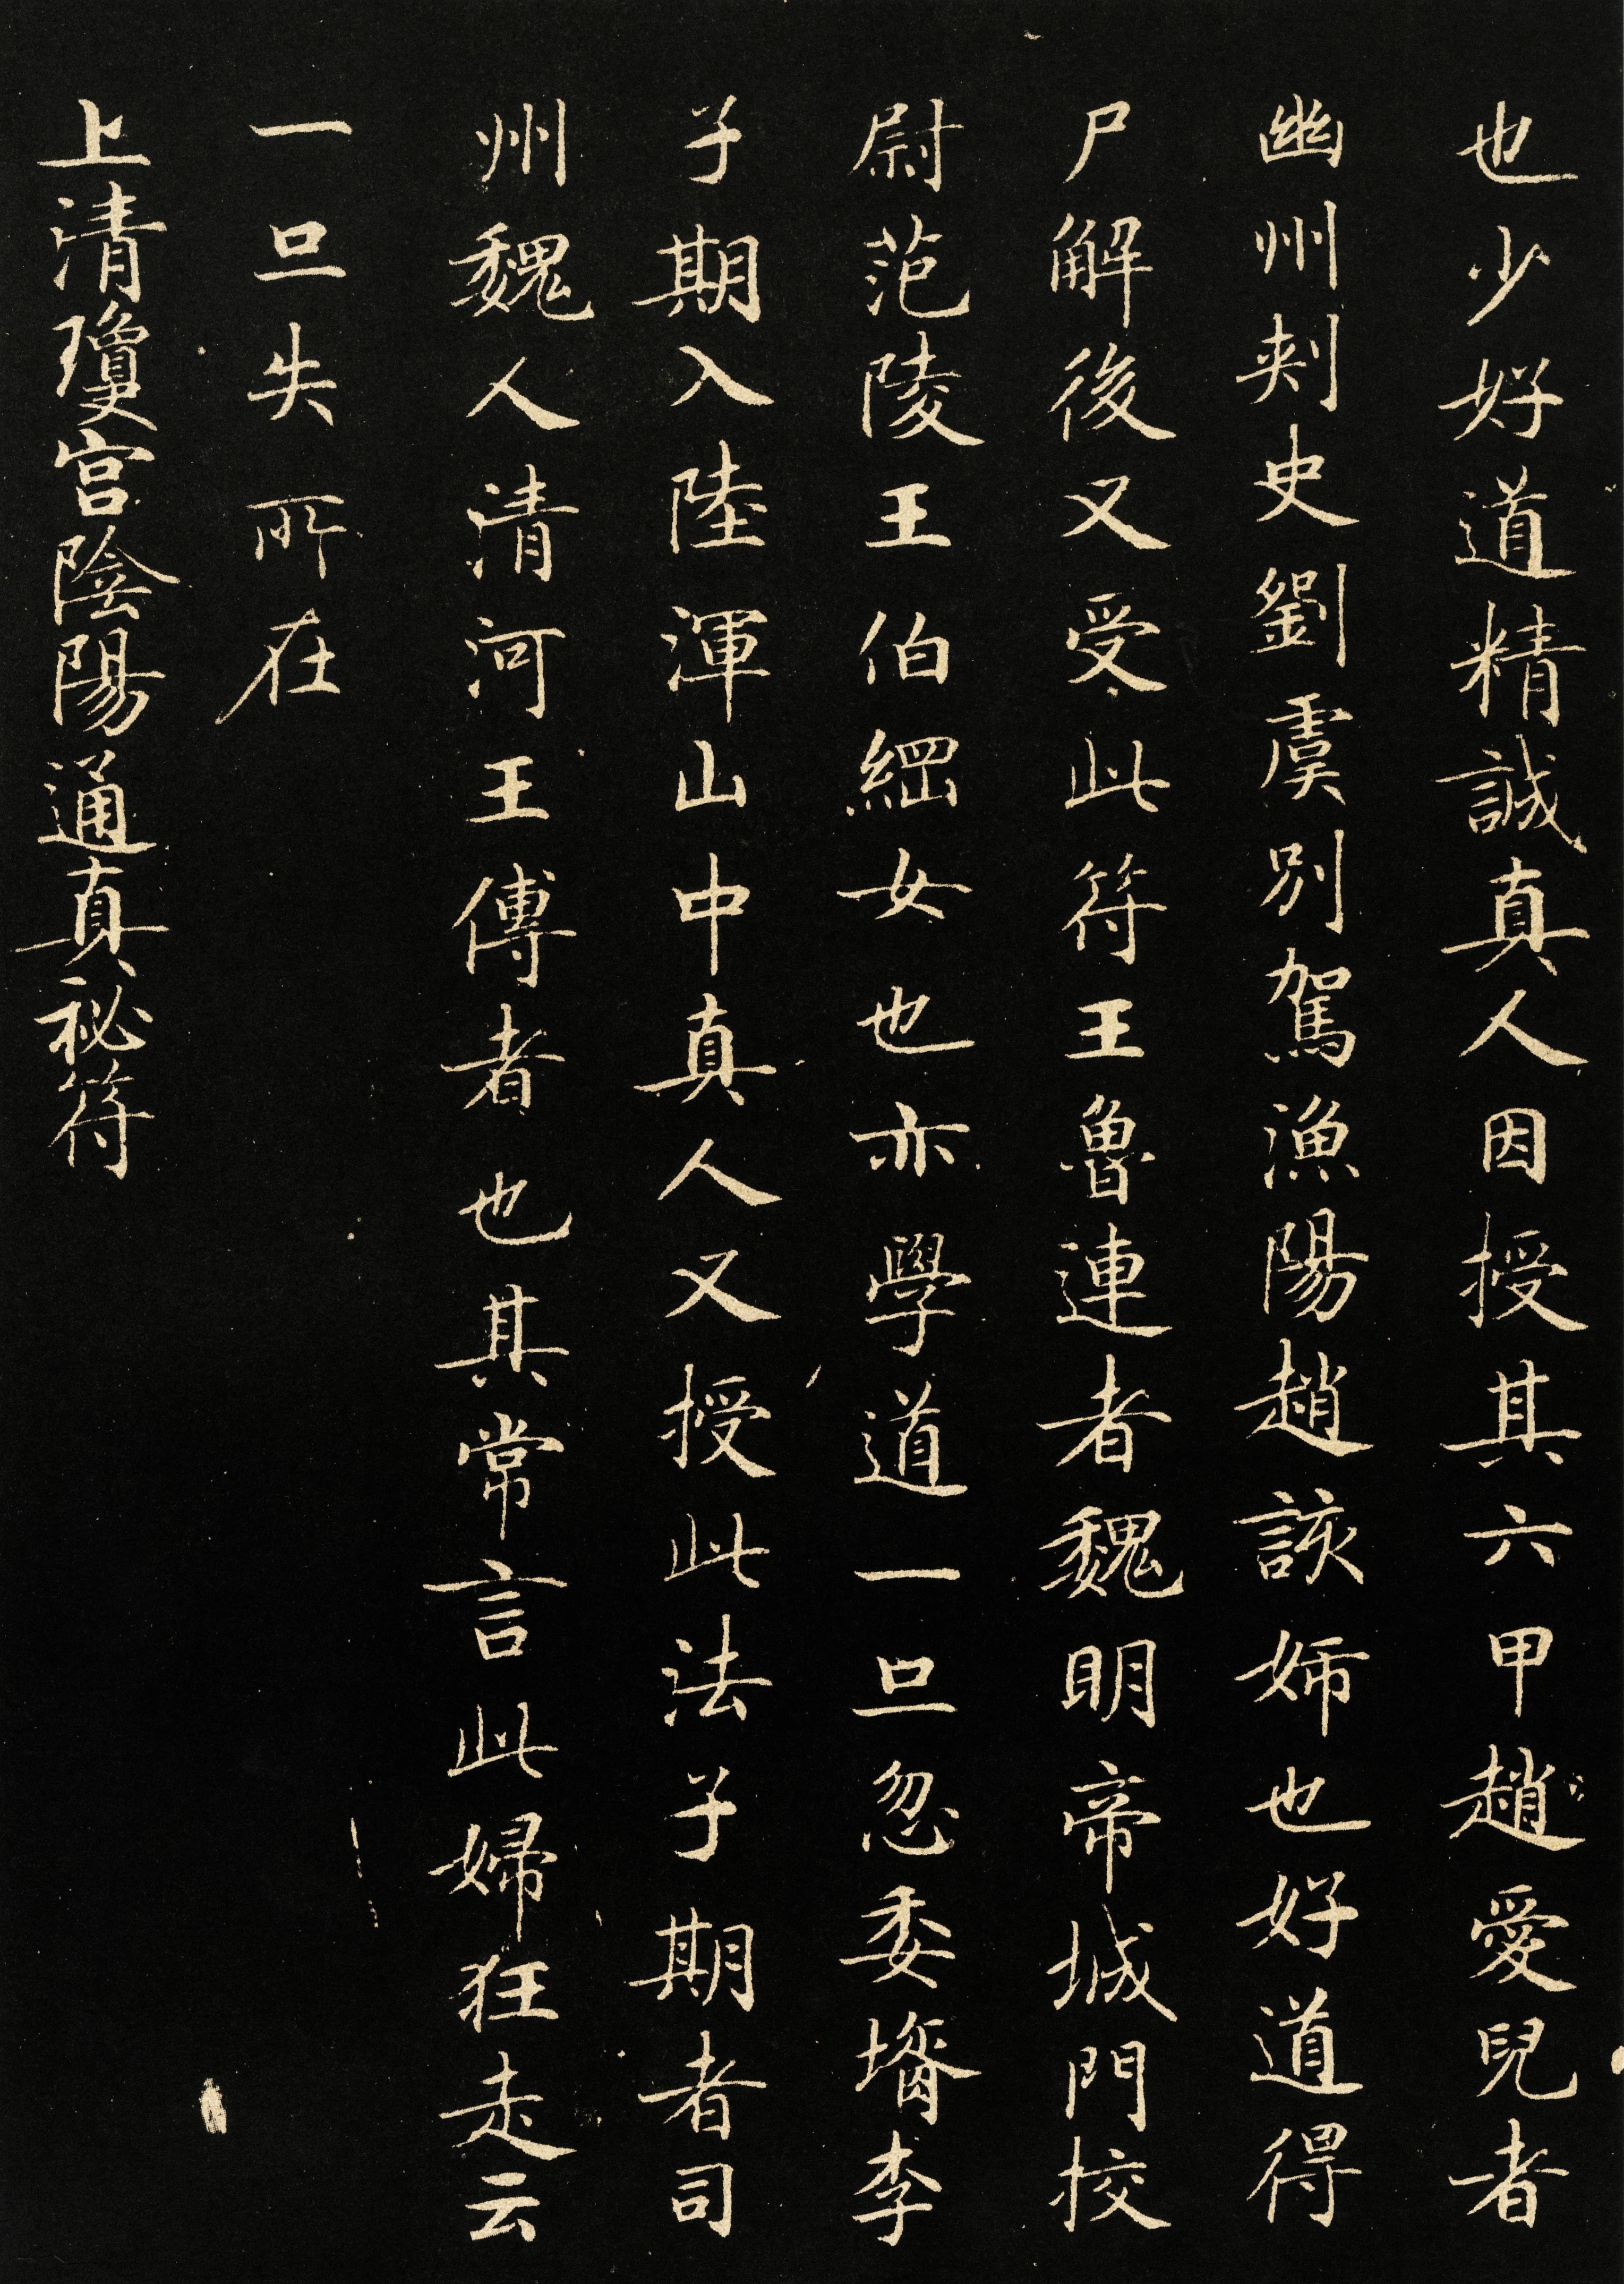 也少好道精誠真人因授其六甲趙愛兒者
幽州刺史劉虞別駕漁陽趙該姊也好道得
尸解後又受此符王魯連者魏明帝城門校
尉范陵王伯綱女也亦學道一旦忽委壻李
子期入陸渾山中真人又授此法子期者司
州魏人清河王傅者也其常言此婦狂走云
一旦失所在
上清瓊宮陰陽通真秘符